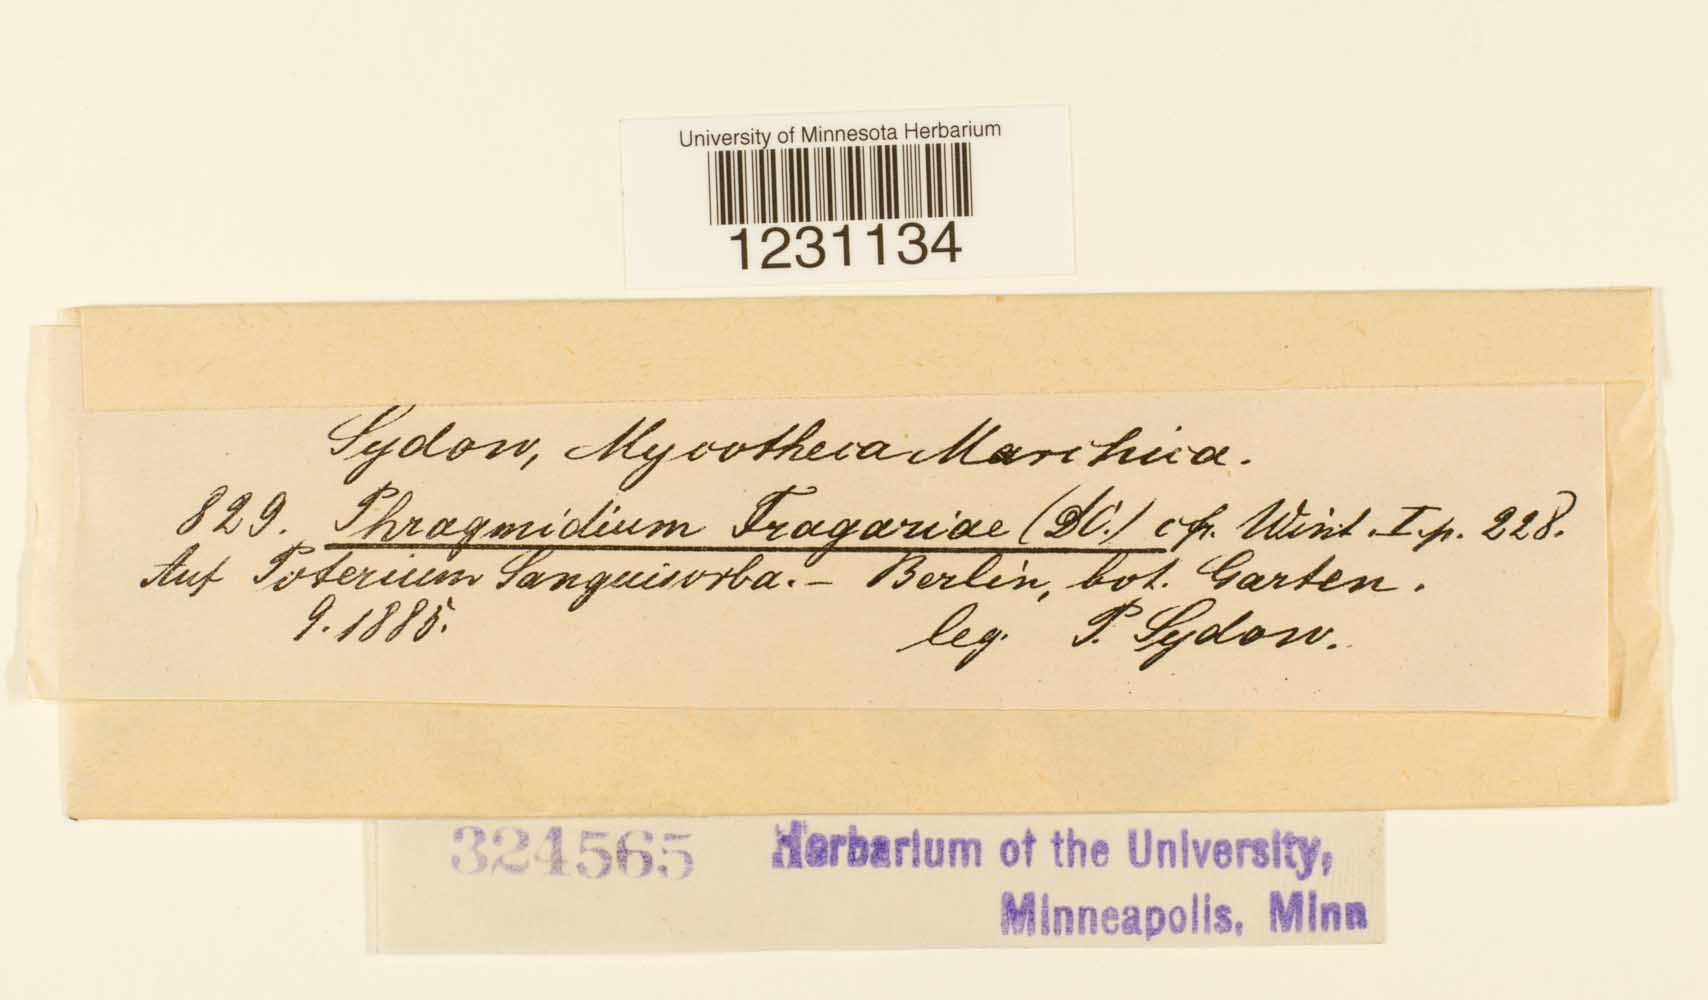 University of Minnesota Herbarium
1231134
Sydow, Mycotheca Marchica.
829. Phragmidium Fragariae (DC.) cfr. Wint. I. p. 228.
Auf Poterium Sanguisorba. – Berlin, bot. Garten.
9. 1885.
leg. P. Sydow.
324565
Herbarium of the University,
Minneapolis, Minn